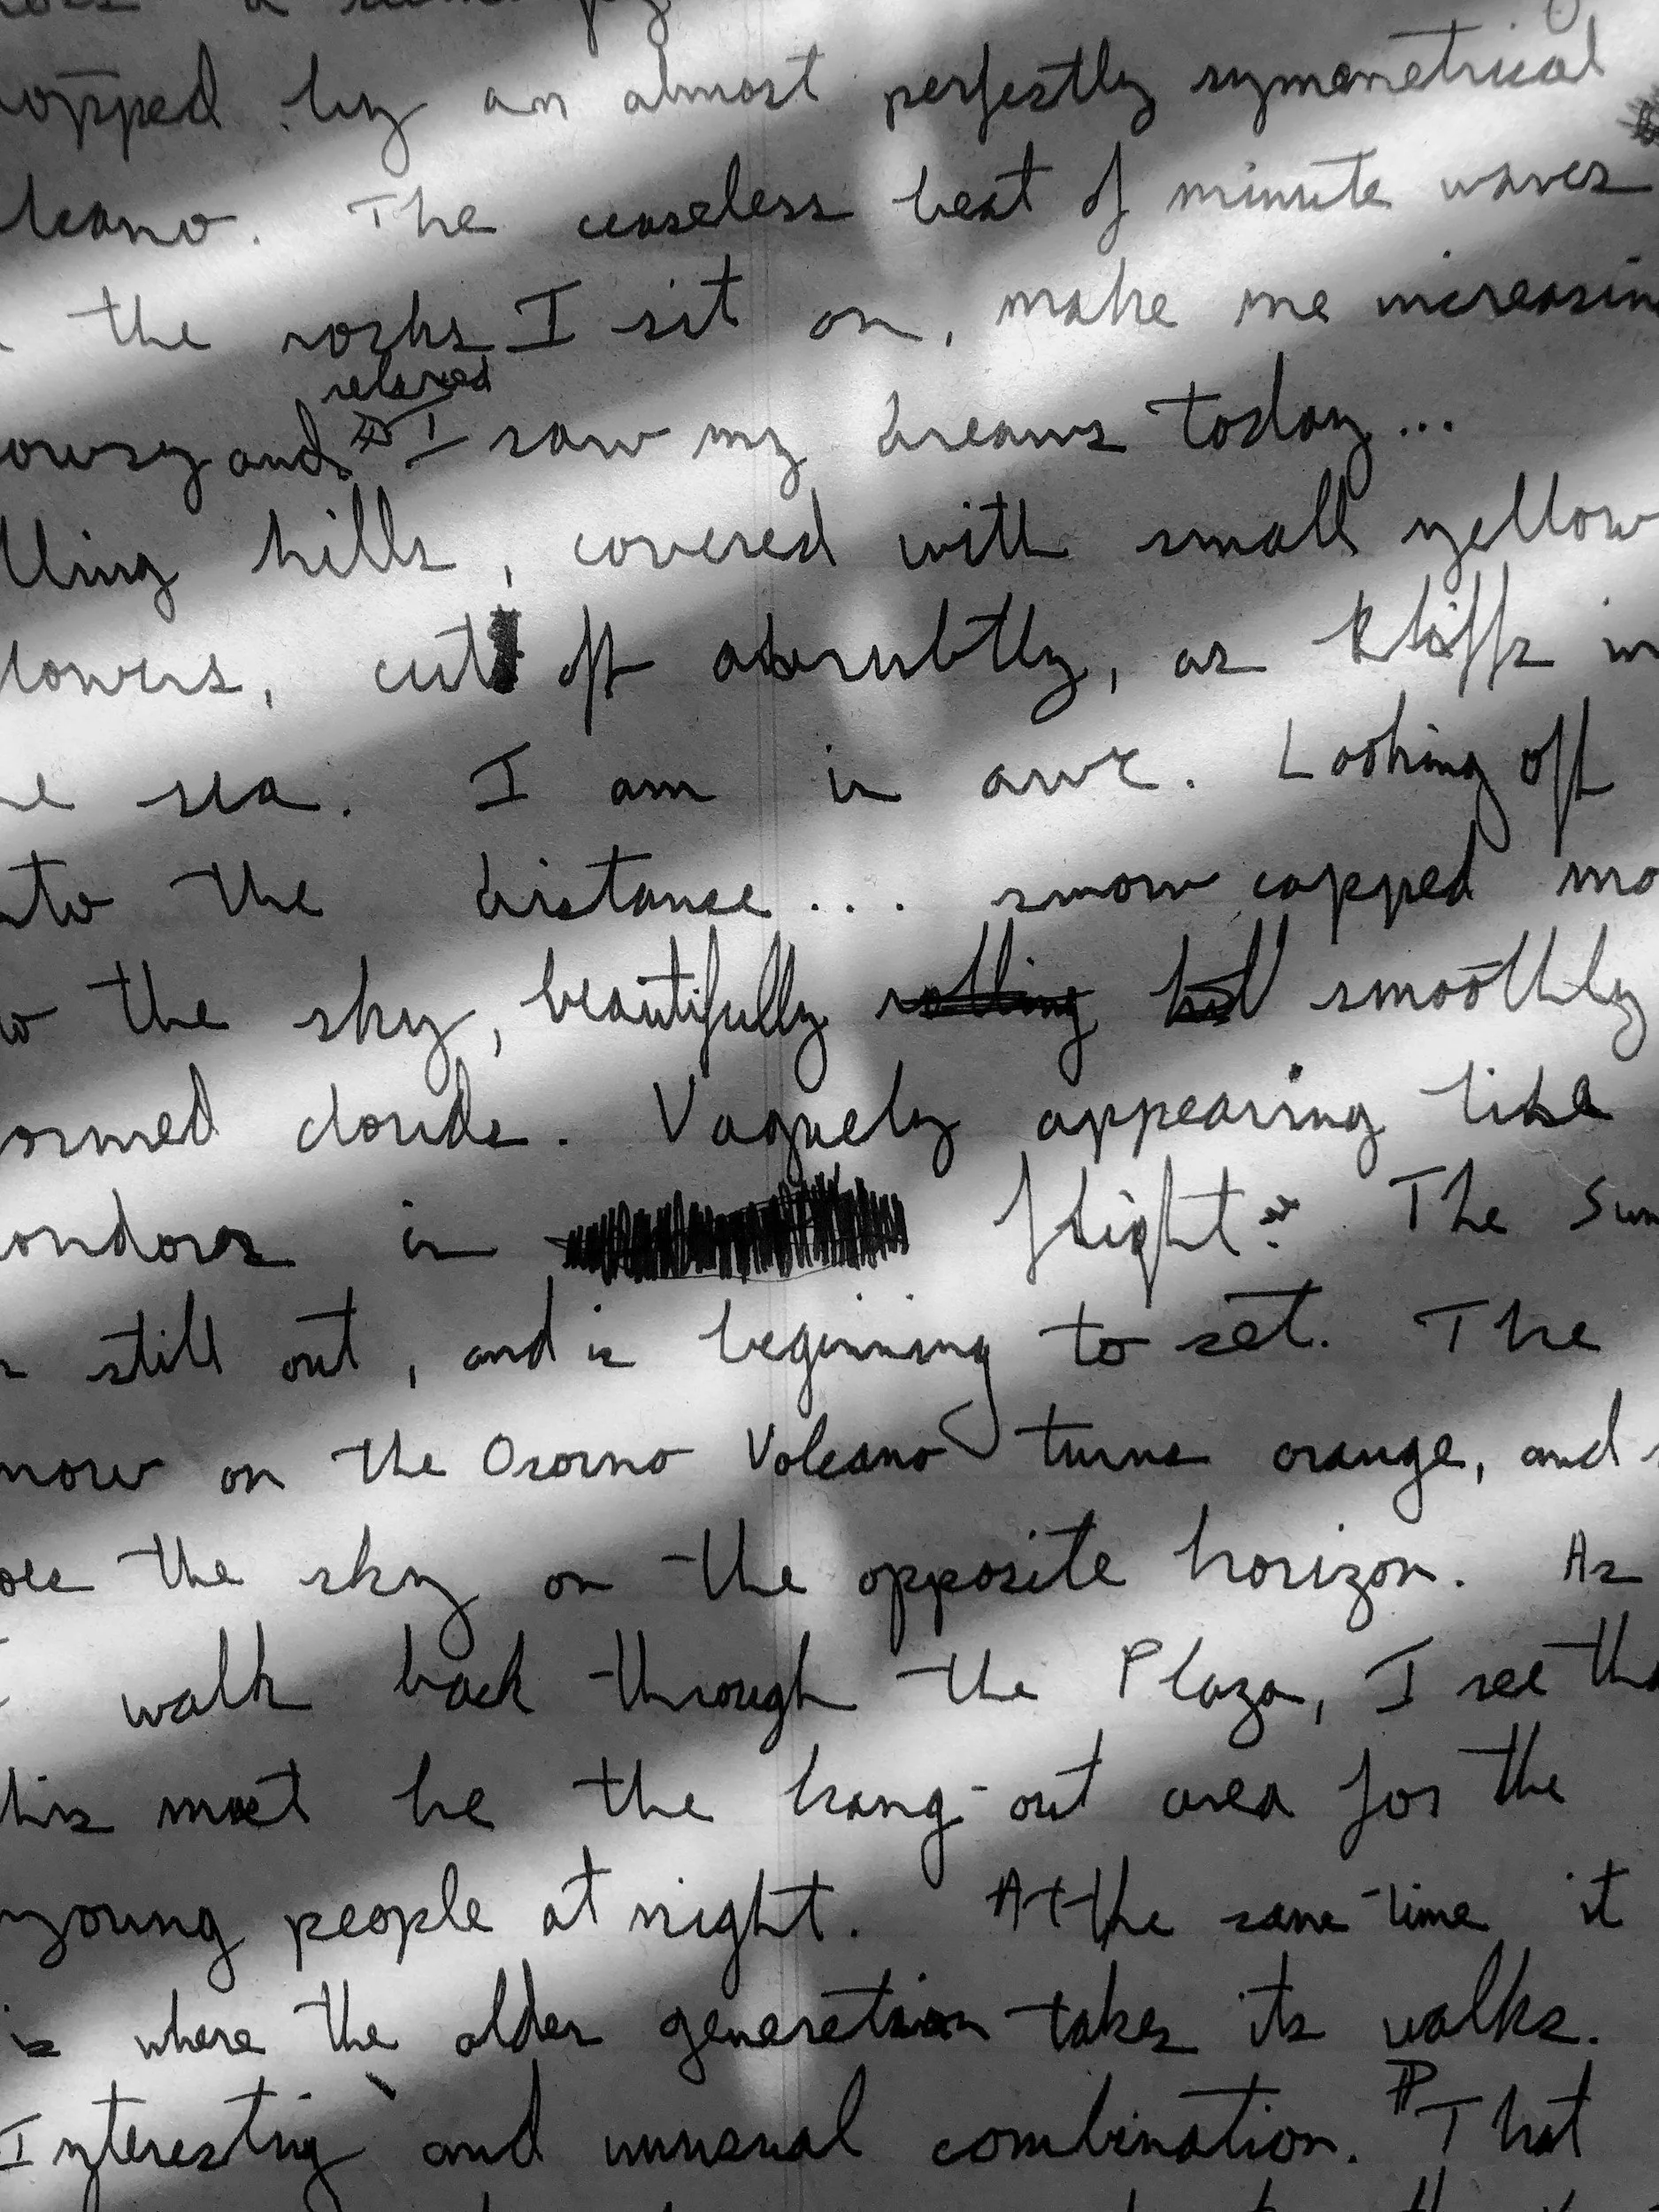 opped by an almost perfectly symmetrical
lcano. The ceaseless beat of minute waves
the rocks I sit on, make me increasin
relaxed
owsy and I saw my dreams today...
lling hills, covered with small yellow
lowers, cut off abrubtly, as kliffs in
e sea. I am in awe. Looking off
nto the distance... snow capped mo
o the sky, beautifully rolling hil smoothly
ormed clouds. Vaguely appearing like
ondores in flight. The Sun
s still out, and is beginning to set. The
now on the Osorno Volcano turns orange, and s
oes the sky on the opposite horizon. As
I walk back through the Plaza, I see tha
his must be the hang-out area for the
young people at night. At the same time it
is where the older generation takes its walks.
Interesting and unusual combination. That